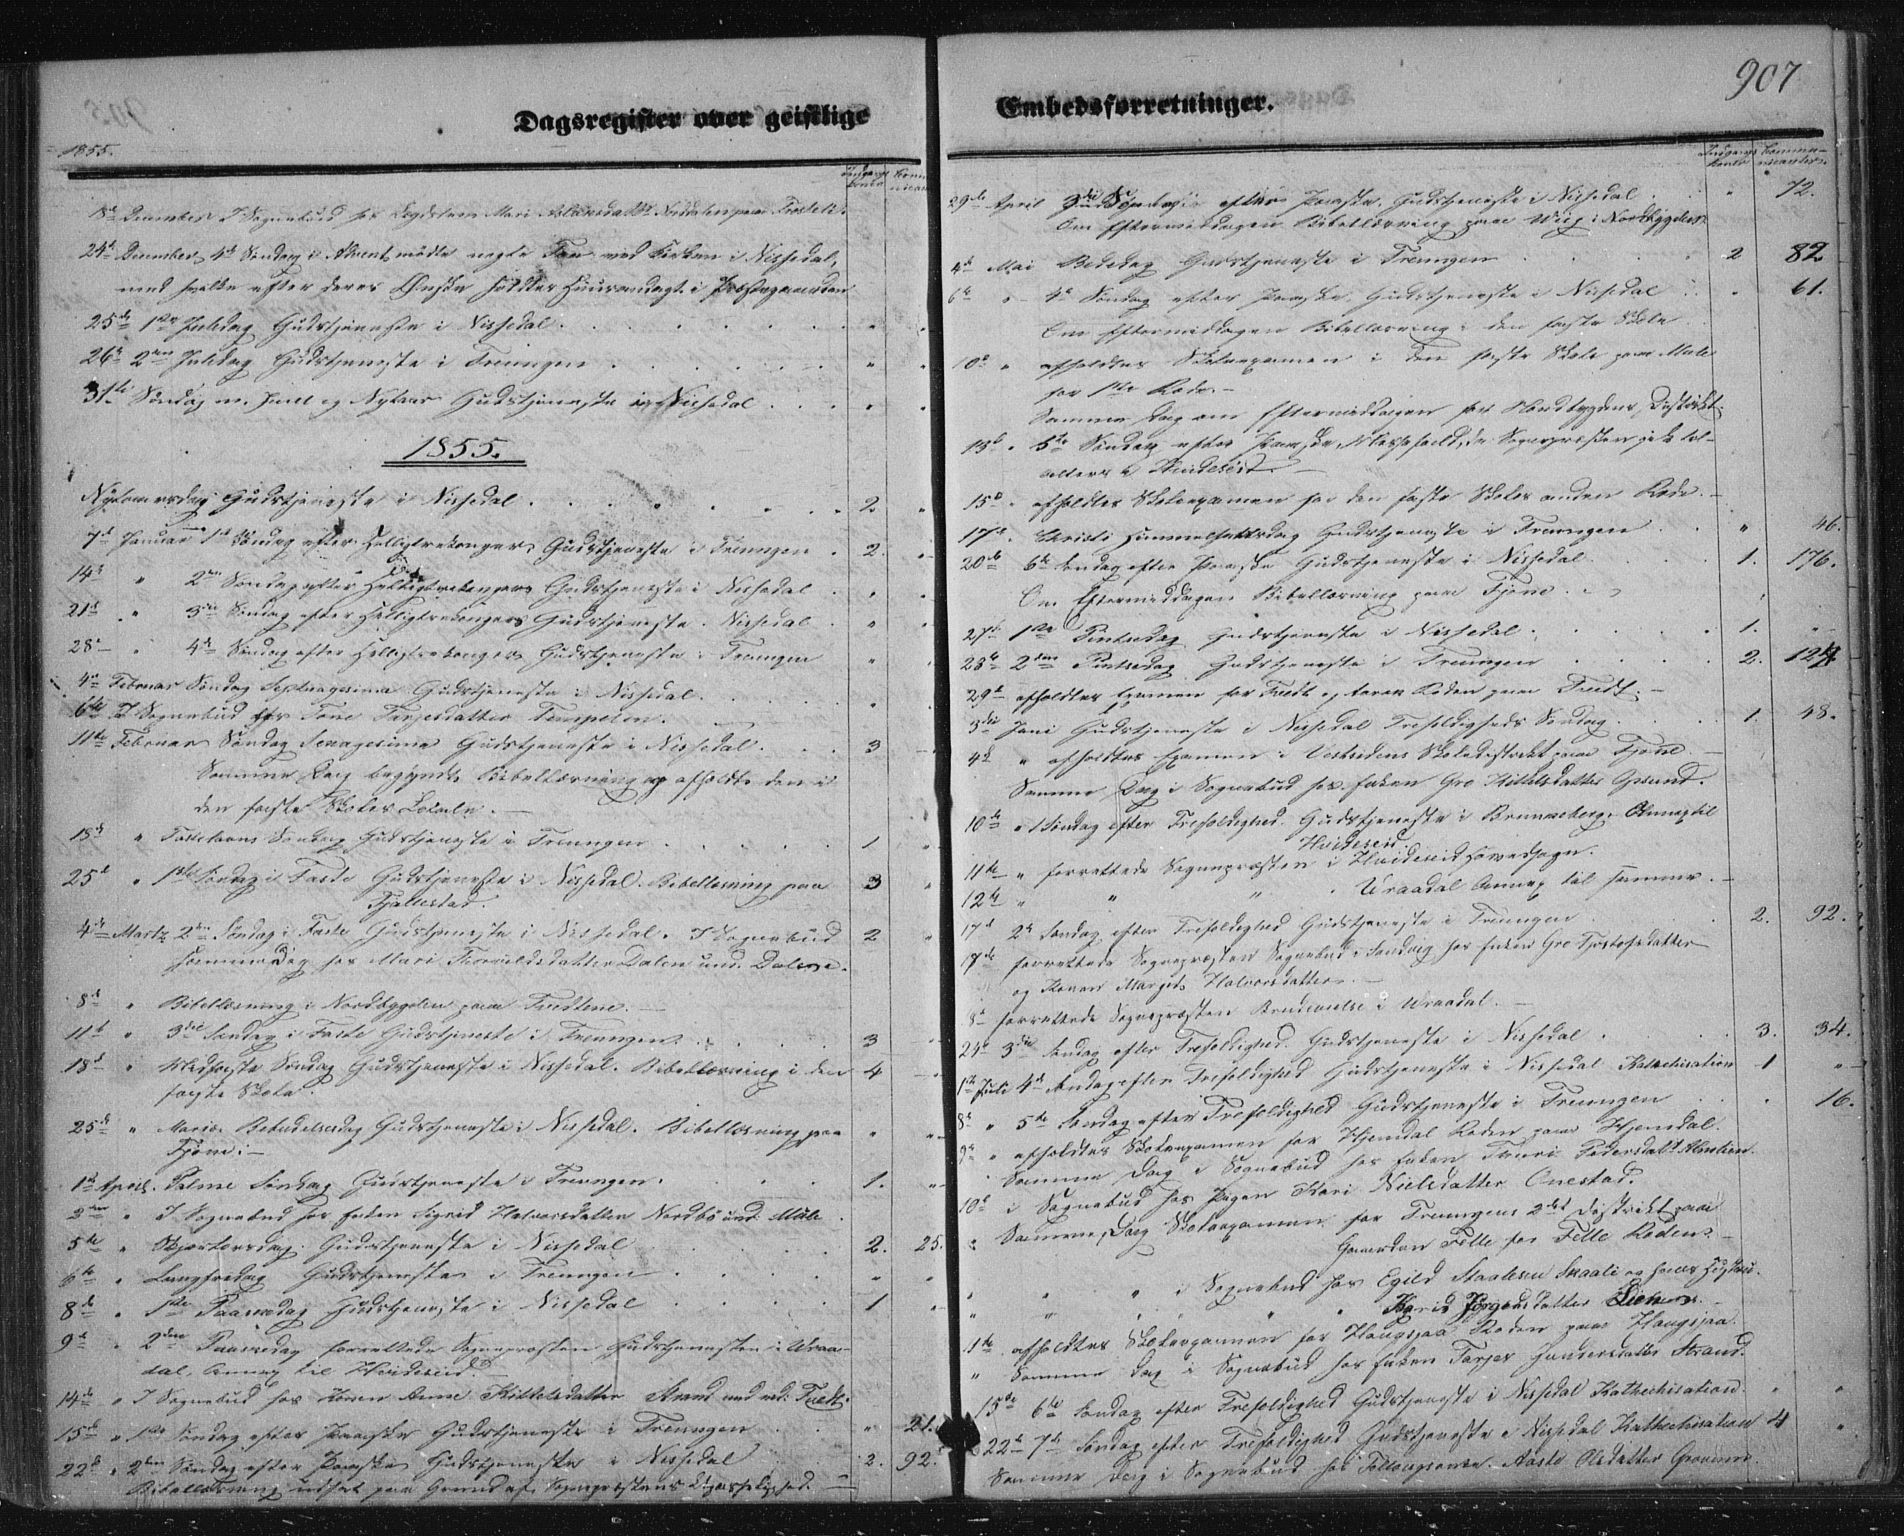 907
Dagsregister over geistlige Embedsforretninger.
1855.
Indgangs- koner Commu- nicanter
24de December 4de Søndag i Advent mødte nogle Faa ved Kirken i Nissedal,
med hvilke efter deres Ønske holdtes Huusandagt i Præstegaarden
25de 1ste Juledag Gudstjeneste i Nissedal. "
26de 2den Juledag Gudstjeneste i Treungen "
31te Søndag m. Juul og Nytaar Gudstjeneste i Nissedal "
1855.
Nytaarsdag Gudstjeneste i Nissedal 2
7de Januar 1ste Søndag efter Helligtrekonger Gudstjeneste i Treungen 2.
14de " 2den Søndag efter Helligtrekonger Gudstjeneste i Nissedal "
21de " 3die Søndag efter Helligtrekonger Gudstjeneste i Nissedal "
28de " 4de Søndag efter Helligtrekonger Gudstjeneste i Treungen "
4de Februar Søndag Septuagesima Gudstjeneste i Nissedal. "
6te I Sognebud hos Tone Terjesdatter
11te Februar Søndag Sexagesima Gudstjeneste i Nissedal. 3
Samme Dag begyndte Bibellæsning og afholdte den i
den faste Skoles Locale.
18de " Fastelavns Søndag Gudstjeneste i Treungen 1
25de " 1ste Søndag i Faste Gudstjeneste i Nissedal. Bibellæsning paa 3
Fjellestad.
4de Marts 2den Søndag i Faste Gudstjeneste i Nissedal. I Sognebud 2
samme Dag hos Mari Thorvaldsdatter Dalen und. Dalene.
8de " Bibellæsning i Nordbygden paa Tvedtene.
11te " 3die Søndag i Faste Gudstjeneste i Treungen 3
18de " Midfaste Søndag Gudstjeneste i Nissedal. Bibellæsning i den 4
faste Skole.
25de " Mariæ Bebudelsesdag Gudstjeneste i Nissedal. Bibellæsning paa "
Fjone.
1ste April. Palme Søndag Gudstjeneste i Treungen. 1.
2den " I Sognebud hos Enken Sigrid Halvorsdatter Nordbø und. Mule
5te " Skjærtorsdag Gudstjeneste i Nissedal 2. 25.
6te " Langfredag Gudstjeneste i Treungen "
8de " 1ste Paaskedag Gudstjeneste i Nissedal 1
9de " 2den Paaskedag forrettede Sognepræsten Gudstjenesten i Vraa-
dal, Annex til Hvideseid.
14de " I Sognebud hos Konen Anne Kittelsdatter Strand und. Tvedt.
15de " 1ste Søndag efter Paaske Gudstjeneste i Treungen " 21.
22de " 2den Søndag efter Paaske Gudstjeneste i Nissedal 2. 92.
Bibellæsning indført paa Grund af Sognepræstens
29de April 3die Søndag efter Paaske. Gudstjeneste i Nissedal " 72.
Om Eftermiddagen Bibellæsning paa Wiig i Nordbygden
4de Mai Bededag Gudstjeneste i Treungen 2 82
6te " 4de Søndag efter Paaske. Gudstjeneste i Nissedal " 61.
Om Eftermiddagen Bibellæsning i den faste Skole
10de " afholdtes Skoleexamen i den faste Skole paa Mule
for 1ste Rode.
Samme Dag om Eftermiddagen for Nordbygdens Distrikt.
13de " 5te Søndag efter Paaske, Messefald, da Sognepræsten gik til-
alters i Hvideseid.
15de " afholdtes Skoleexamen for den faste Skoles anden Rode.
17de. Christi Himmelfartsdag Gudstjeneste i Treungen " 46.
20de 6te Søndag efter Paaske Gudstjeneste i Nissedal 1. 176.
Om Eftermiddagen Bibellæsning paa Fjone.
27de 1ste Pintsedag Gudstjeneste i Nissedal. 1.
28de 2den Pintsedag Gudstjeneste i Treungen 2. 124
29de afholdtes Examen for Tvedt og Roden paa Tvedt.
3die Juni Gudstjeneste i Nissedal Trefoldigheds Søndag 1. 48.
4de " afholdtes Examen i Vestsidens Skoledistrikt paa Fjone.
Samme Dag i Sognebud hos Enken Gro Kittelsdatter
10de " 1 Søndag efter Trefoldighed. Gudstjeneste i Brunkeberg, Annex til
Hvideseid
11te " forrettede Sognepræsten i Hvideseid Hovedsogn.
12te " " " Vraadal Annex til samme.
17de 2den Søndag efter Trefoldighed Gudstjeneste i Treungen 2. 92.
17de forrettede Sognepræsten Sognebud i Sandvig hos Enken Gro Tjostolsdatter
og Konen Margit Halvorsdatter.
forrettede Sognepræsten Brudevielse i Vraadal.
24de 3die Søndag efter Trefoldighed. Gudstjeneste i Nissedal 3. 34.
1ste Juli 4de Søndag efter Trefoldighed Gudstjeneste i Nissedal Kathechisation 1
8de " 5te Søndag efter Trefoldighed Gudstjeneste i Treungen " 16.
9de " afholdtes Skoleexamen for Hjemdal Roden paa Hjemdal.
Samme Dag i Sognebud hos Enken
10de i Sognebud hos Pigen Kari Nielsdatter Onestad.
Samme Dag Skoleexamen for Treungens 2det Distrikt paa
Gaarden Felle for Felle Roden.
" " i Sognebud hos Egild Staalesen Skaali og hans Hustru
" " " Karis Jørgensdatter
11te afholdtes Skoleexamen for Haugsjaa Roden paa Haugsjaa.
" Samme Dag i Sognebud hos Enken Strand.
15de 6te Søndag efter Trefoldighed Gudstjeneste i Nissedal Kathechisation. "
22de 7de Søndag efter Trefoldighed Gudstjeneste i Nissedal Kathechisation 4 "
Samme Dag i Sognebud hos Aaste Olsdatter